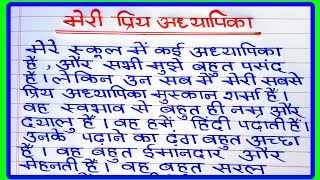 मेरी प्रिय अध्यापिका
मेरे स्कूल में कई अध्यापिका
हैं , और सभी मुझे बहुत पसंद
हैं । लेकिन उन सब में मेरी सबसे
प्रिय अध्यापिका मुस्कान शर्मा हैं ।
वह स्वभाव से बहुत ही नम्र और
दयालु हैं । वह हमें हिंदी पढ़ाती हैं ।
उनके पढ़ाने का ढंग बहुत अच्छा
है । वह बहुत ईमानदार और
मेहनती हैं । वह बहुत सरल